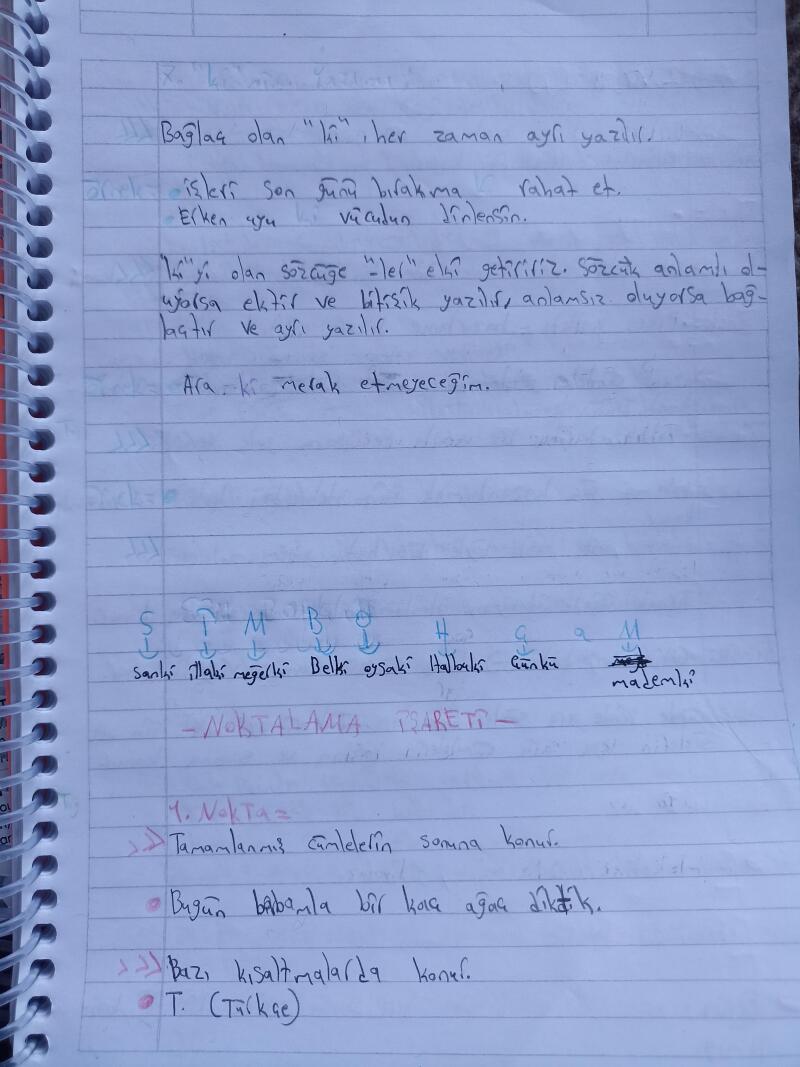 Bağlaç olan "ki", her zaman ayrı yazılır.
• işleri son günü bırakma rahat et.
• Erken uyu ki vücudun dinlensin.
"ki"yi olan sözcüğe "-ler" eki getiririz. Sözcük anlamlı o-
uyorsa ektir ve bitişik yazılır, anlamsız oluyorsa bağ-
laçtır ve ayrı yazılır.
Ara ki merak etmeyeceğim.
S İ M B O H Ç a M
Sanki illaki meğerki Belki oysaki Halbuki Çünkü mademki
- NOKTALAMA İŞARETİ -
1. Nokta =
>> Tamamlanmış cümlelerin sonuna konur.
• Bugün babamla bir kaç ağaç diktik.
>>> Bazı kısaltmalarda konur.
• T. (Türkçe)